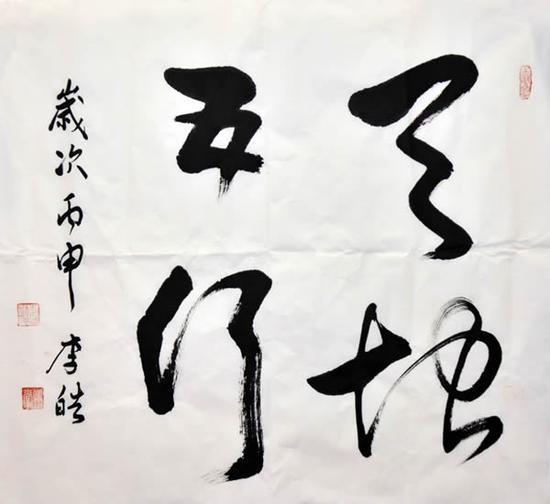 天地
五行
歲次丙申 李皓